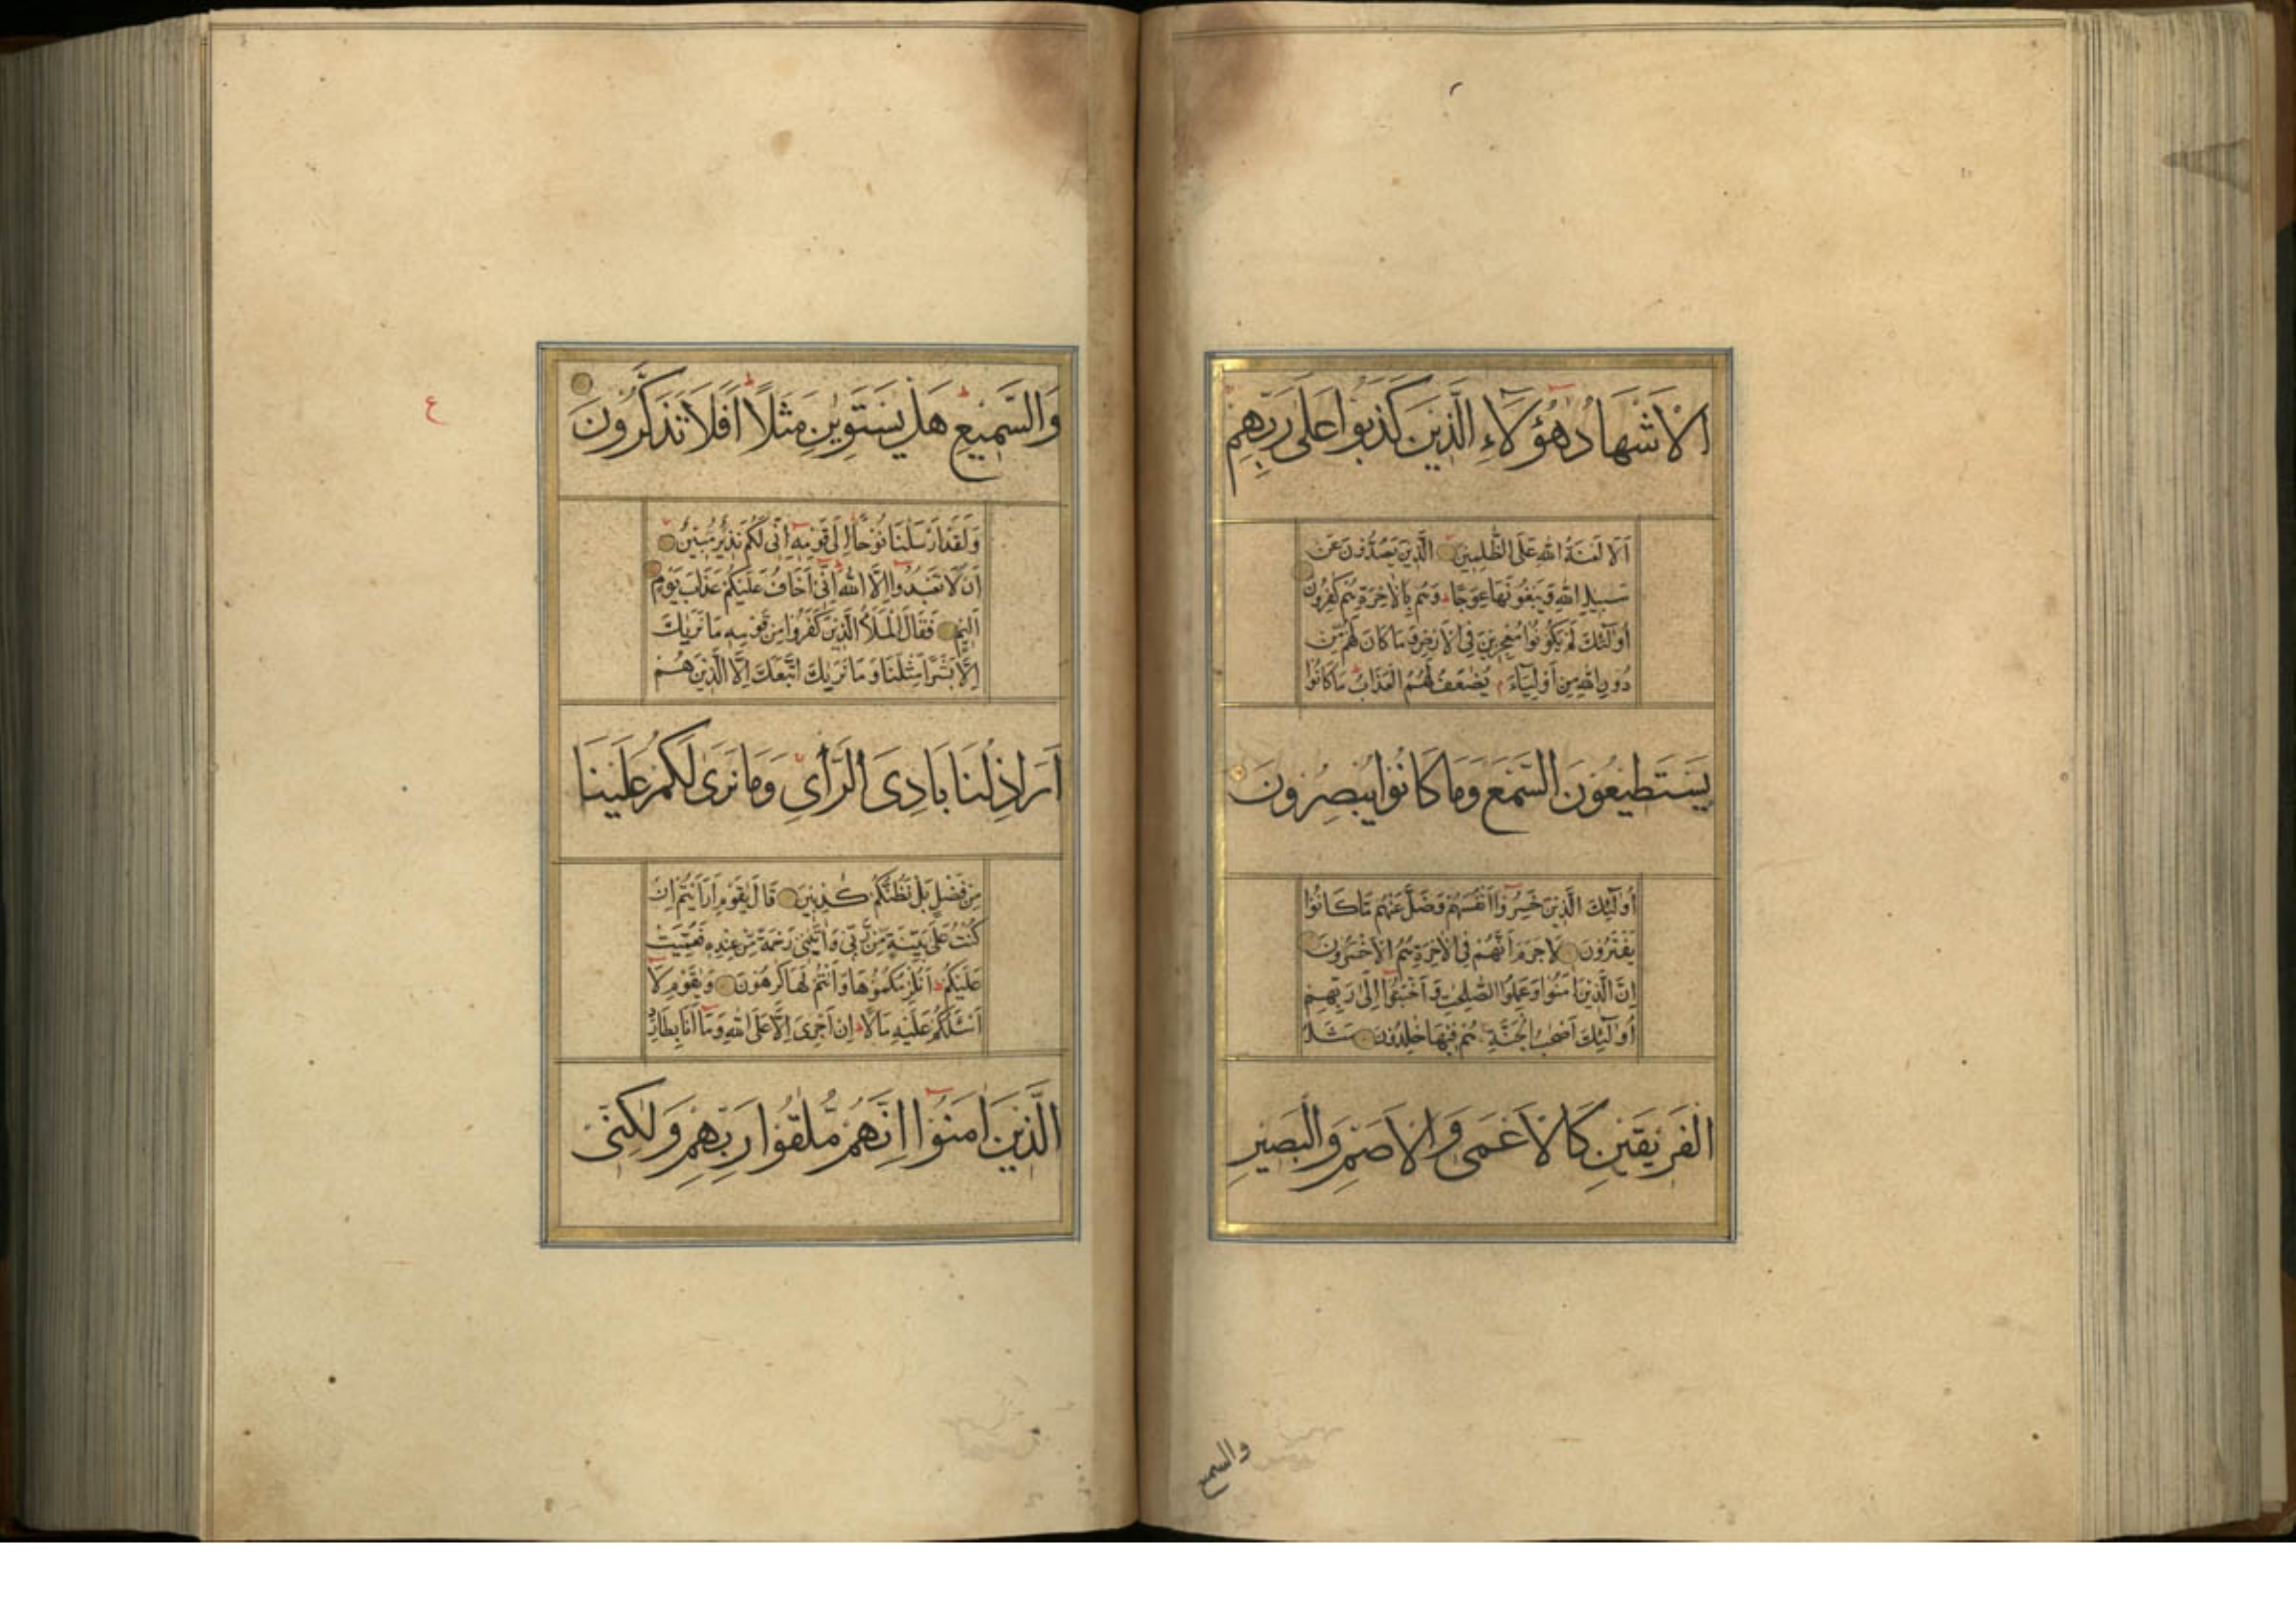 الْاَشْهَادُ هٰٓؤُلَآءِ الَّذِيْنَ كَذَبُوْا عَلٰى رَبِّهِمْ
اَلَا لَعْنَةُ اللّٰهِ عَلَى الظّٰلِمِيْنَ الَّذِيْنَ يَصُدُّوْنَ عَنْ
سَبِيْلِ اللّٰهِ وَيَبْغُوْنَهَا عِوَجًا وَهُمْ بِالْاٰخِرَةِ هُمْ كٰفِرُوْنَ
اُولٰٓئِكَ لَمْ يَكُوْنُوْا مُعْجِزِيْنَ فِى الْاَرْضِ وَمَا كَانَ لَهُمْ مِّنْ
دُوْنِ اللّٰهِ مِنْ اَوْلِيَآءَ م يُضٰعَفُ لَهُمُ الْعَذَابُ ط مَا كَانُوْا
يَسْتَطِيْعُوْنَ السَّمْعَ وَمَا كَانُوْا يُبْصِرُوْنَ
اُولٰٓئِكَ الَّذِيْنَ خَسِرُوْٓا اَنْفُسَهُمْ وَضَلَّ عَنْهُمْ مَّا كَانُوْا
يَفْتَرُوْنَ لَا جَرَمَ اَنَّهُمْ فِى الْاٰخِرَةِ هُمُ الْاَخْسَرُوْنَ
اِنَّ الَّذِيْنَ اٰمَنُوْا وَعَمِلُوا الصّٰلِحٰتِ وَاَخْبَتُوْٓا اِلٰى رَبِّهِمْ
اُولٰٓئِكَ اَصْحٰبُ الْجَنَّةِ هُمْ فِيْهَا خٰلِدُوْنَ مَثَلُ
الْفَرِيْقَيْنِ كَالْاَعْمٰى وَالْاَصَمِّ وَالْبَصِيْرِ
والسميع
وَالسَّمِيْعِ ط هَلْ يَسْتَوِيٰنِ مَثَلًا ط اَفَلَا تَذَكَّرُوْنَ
ع
وَلَقَدْ اَرْسَلْنَا نُوْحًا اِلٰى قَوْمِهٖٓ اِنِّىْ لَكُمْ نَذِيْرٌ مُّبِيْنٌ
اَنْ لَّا تَعْبُدُوْٓا اِلَّا اللّٰهَ ط اِنِّىْٓ اَخَافُ عَلَيْكُمْ عَذَابَ يَوْمٍ
اَلِيْمٍ فَقَالَ الْمَلَاُ الَّذِيْنَ كَفَرُوْا مِنْ قَوْمِهٖ مَا نَرٰىكَ
اِلَّا بَشَرًا مِّثْلَنَا وَمَا نَرٰىكَ اتَّبَعَكَ اِلَّا الَّذِيْنَ هُمْ
اَرَاذِلُنَا بَادِىَ الرَّاْىِ وَمَا نَرٰى لَكُمْ عَلَيْنَا
مِنْ فَضْلٍ بَلْ نَظُنُّكُمْ كٰذِبِيْنَ قَالَ يٰقَوْمِ اَرَاَيْتُمْ اِنْ
كُنْتُ عَلٰى بَيِّنَةٍ مِّنْ رَّبِّىْ وَاٰتٰىنِىْ رَحْمَةً مِّنْ عِنْدِهٖ فَعُمِّيَتْ
عَلَيْكُمْ ط اَنُلْزِمُكُمُوْهَا وَاَنْتُمْ لَهَا كٰرِهُوْنَ وَيٰقَوْمِ لَآ
اَسْئَلُكُمْ عَلَيْهِ مَالًا ط اِنْ اَجْرِىَ اِلَّا عَلَى اللّٰهِ وَمَآ اَنَا بِطَارِدِ
الَّذِيْنَ اٰمَنُوْٓا اِنَّهُمْ مُّلٰقُوْا رَبِّهِمْ وَلٰكِنِّىْ